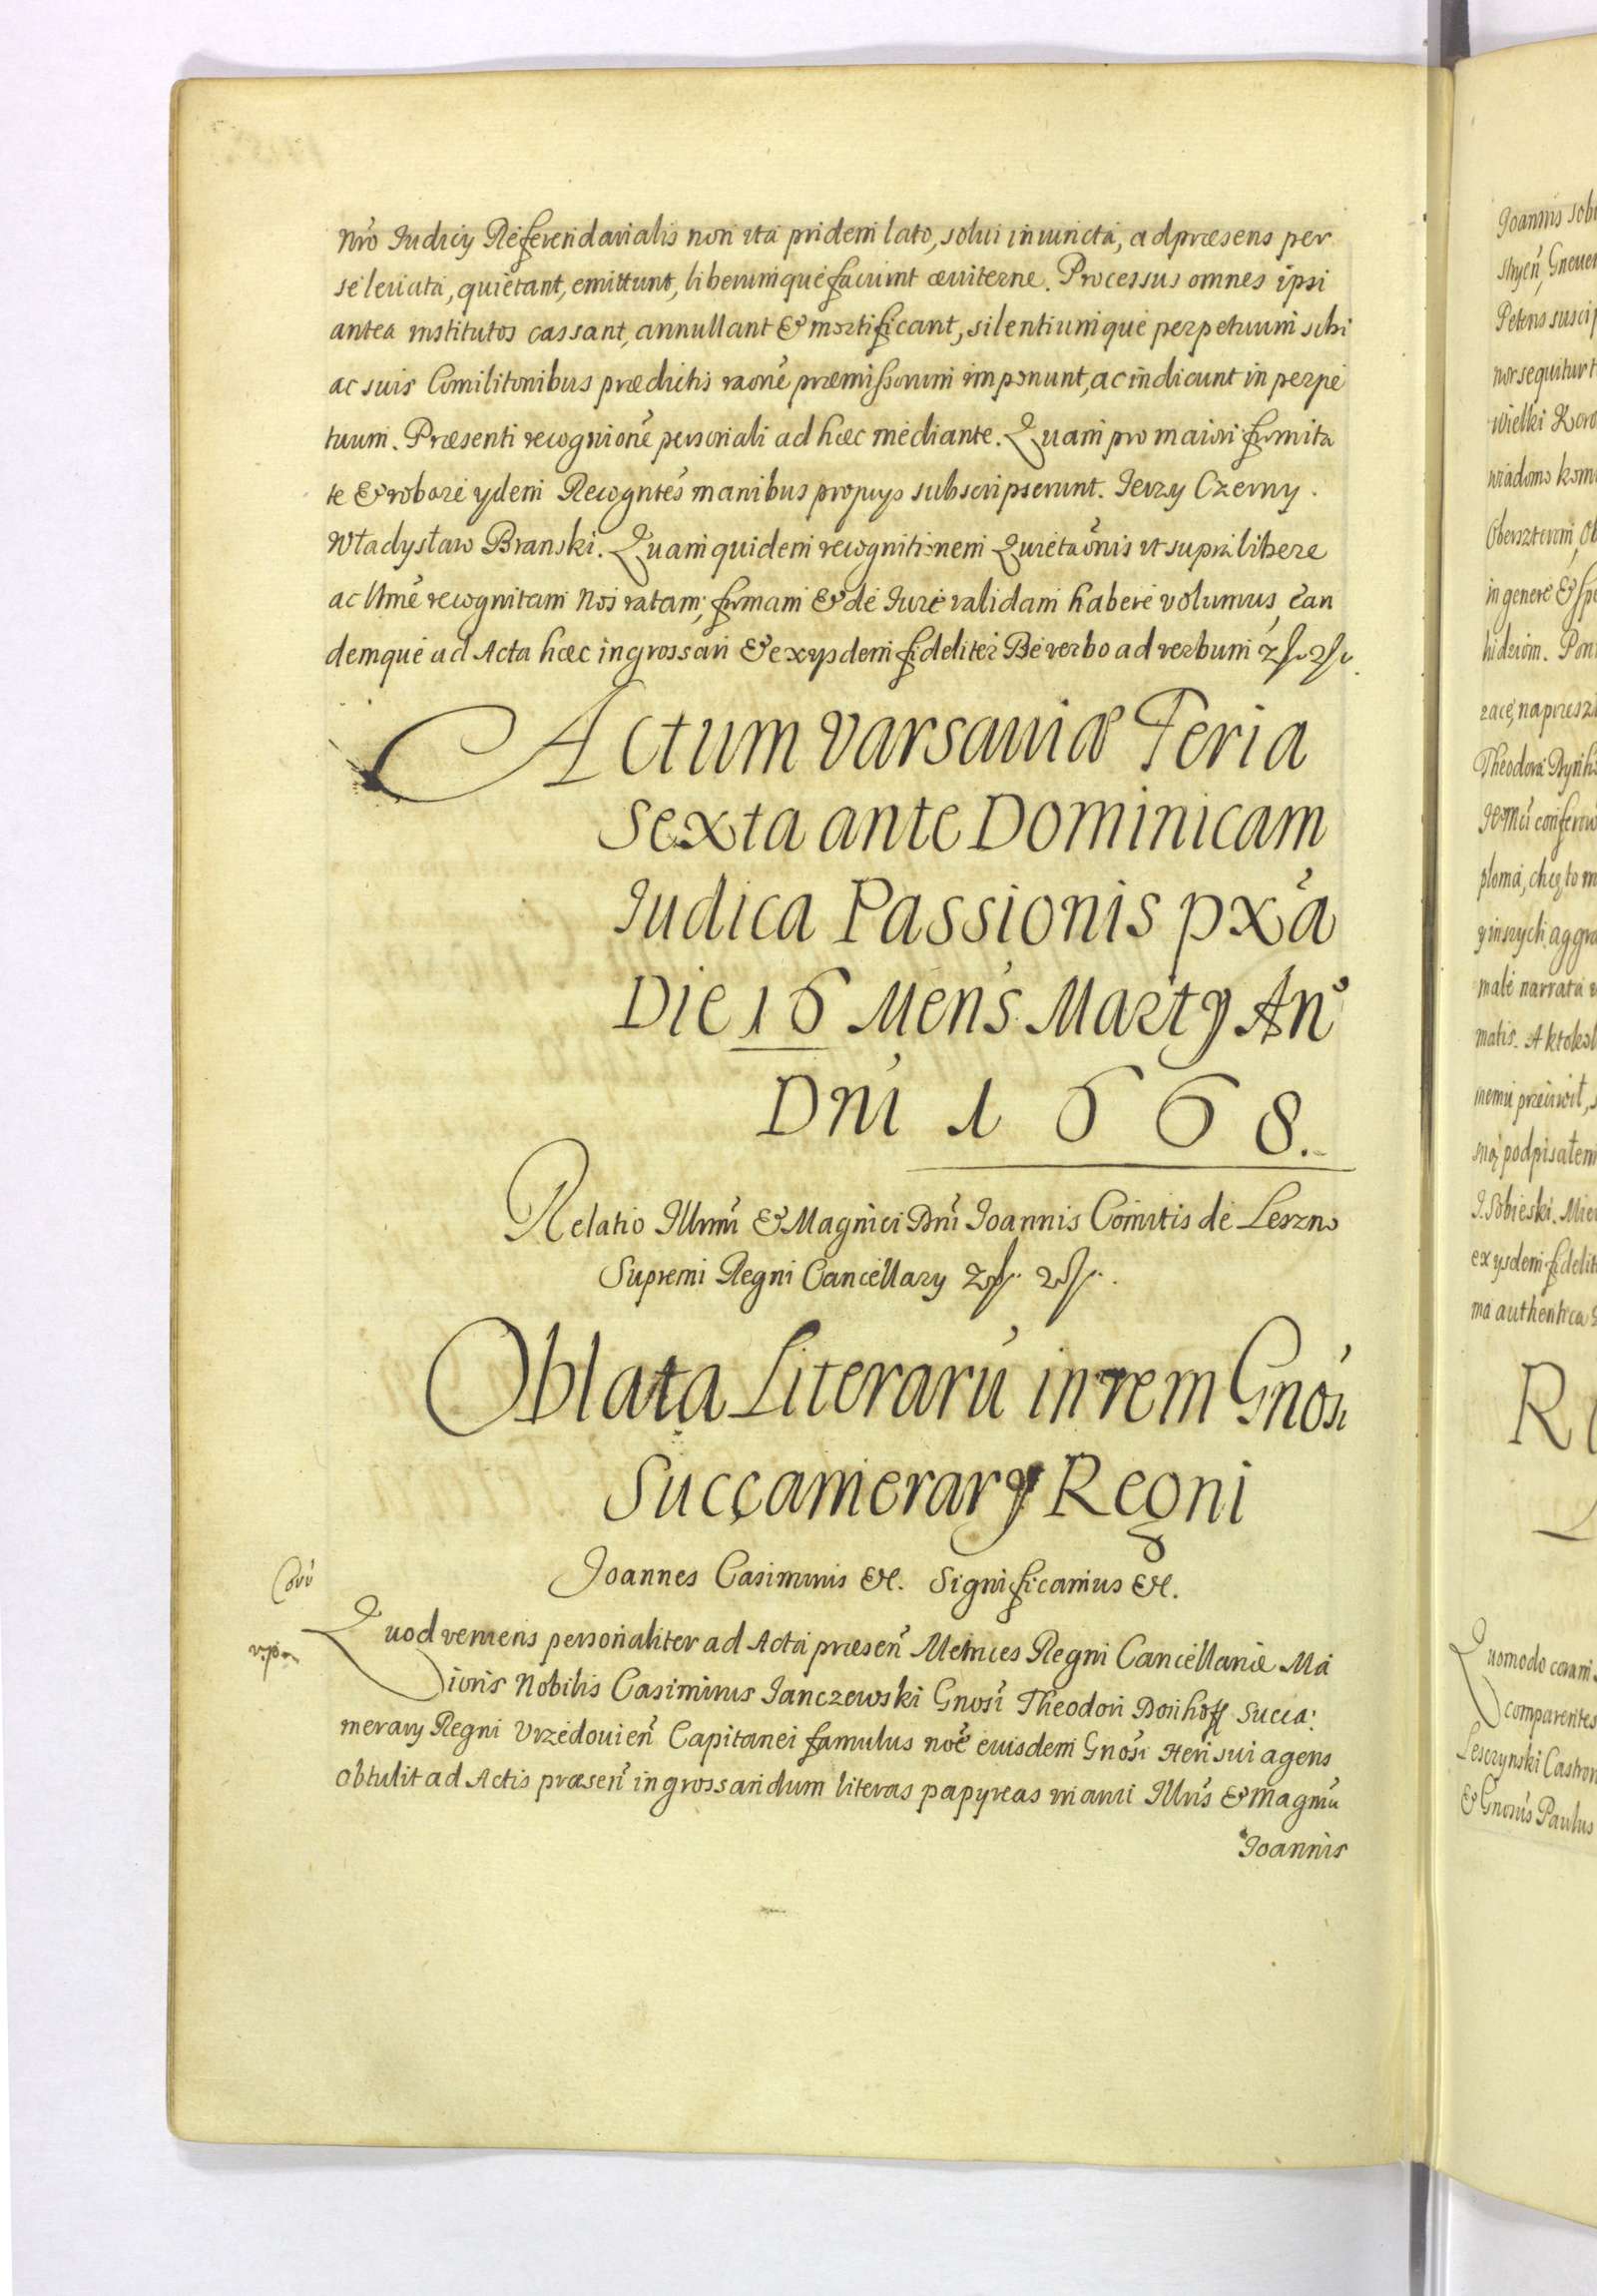 nro Iudicij Referendarialis non ita pridem lato, solui iniuncta, ad præsens per
se leuata, quietant, emittunt, liberumque faciunt æuiterne. Processus omnes ipsi
antea institutos cassant, annullant & mortificant, silentiumque perpetuum sibi
ac suis Comilitonibus prædictis raone præmissorum imponunt, ac indicunt in perpe
tuum. Præsenti recognione personali ad hæc mediante. Quam pro maiori firmita
te & robore ydem Recogntes manibus proprys subscripserunt. Jerzy Czerny.
Władysław Branski. Quam quidem recognitionem Quietaonis vt supra libere
ac Ltme recognitam Nos ratam, firmam & de Iure validam habere volumus, ean
demque ad Acta hæc ingrossari & ex ysdem fideliter De verbo ad verbum
Actum Varsauiæ Feria
Sexta ante Dominicam
Iudica Passionis pxa
Die 16 Mens Martÿ An°
Dni 1668.
Relatio Illmi & Magnici Dni Ioannis Comitis de Leszno
Supremi Regni Cancellary
Oblata Literaru in rem Gnosi
Succamerarÿ Regni
Joannes Casimirus &c. Significamus &c.
Quod veniens personaliter ad Acta præsen Metrices Regni Cancellariæ Ma
ioris Nobilis Casimirus Janczewski Gnosi Theodori Donhoff Succa:
merary Regni Vrzedouien Capitanei famulus noe eiusdem Gnosi Heri sui agens
obtulit ad Actis præsen ingrossandum literas papyreas manu Illris & Magnu
Joannis
Joannis Sobi
Gneuen
Petens suscip
nor sequitur t
wielki Koro
wiadomo
in genere & spe
Theodora
ploma, chcąc to m
male narrata
matis. A ktokol
podpisałem
J. Sobieski. Mie
ex ysdem fidelit
ma authentica
R
Quomodo coram
comparentes
Lesczynski Castron
& Gnosus Paulus